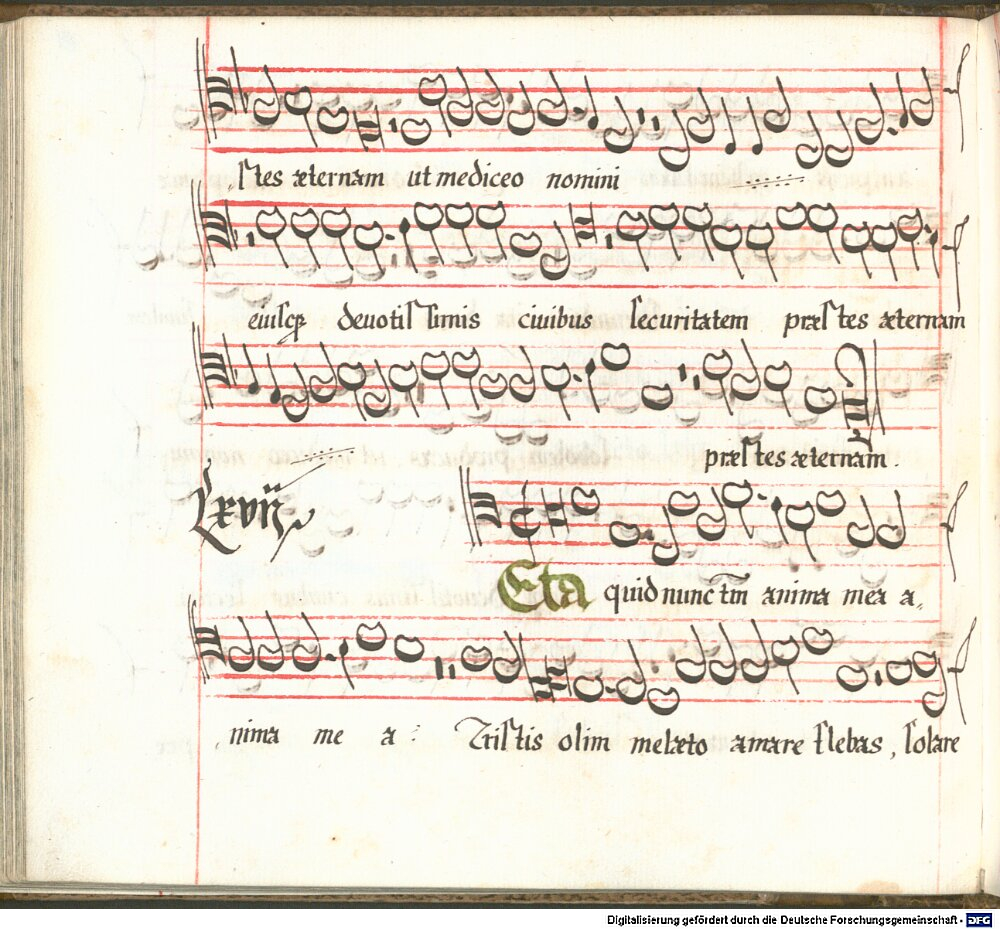 stes æternam ut mediceo nomini
eiusq; deuotissimis ciuibus securitatem præstes æternam
præstes æternam.
Lxvij.
Eia quid nunc tm̄ anima mea a,
nima me a : Tristis olim me læto amare flebas, solare
Digitalisierung gefördert durch die Deutsche Forschungsgemeinschaft - DFG